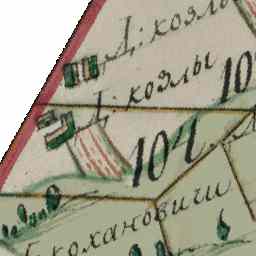 Д: козлы
Д: козлы
10
104
кохановичи